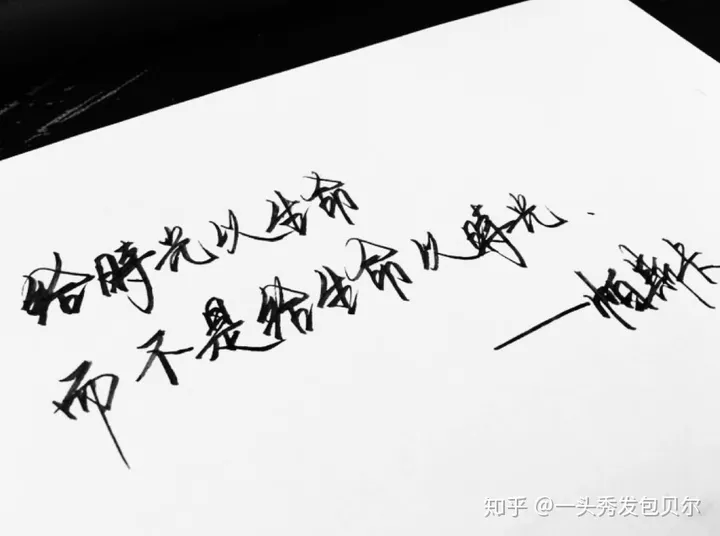 给時光以生命
而不是给生命以時光.
—帕斯卡
知乎 @一头秀发包贝尔